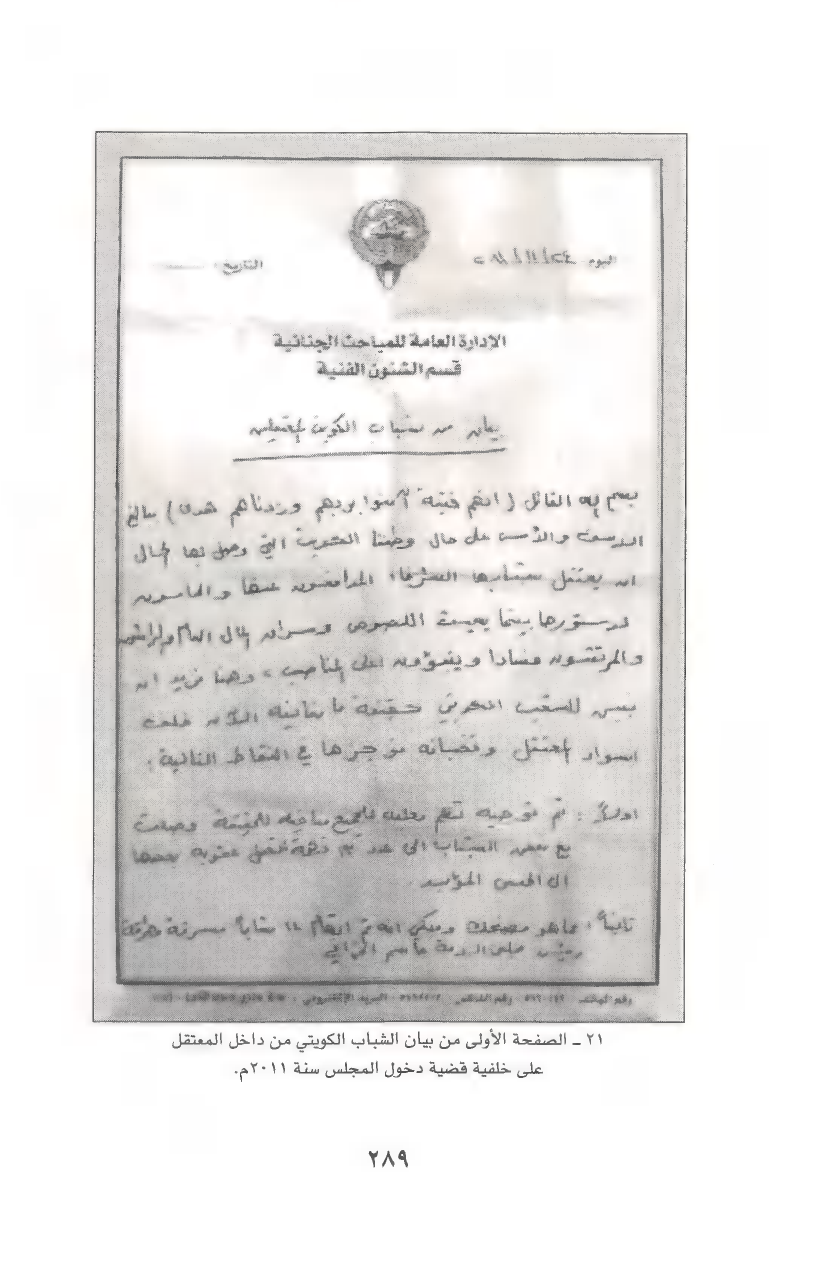 اليوم ٢٤/١١/٢٠١١
التاريخ:
الإدارة العامة للمباحث الجنائية
قسم الشئون الفنية
بيان من شباب الكويت المعتقلين
بسم الله القائل (انهم فتية آمنوا بربهم وزدناهم هدى) ببالغ
والأسى على حال وطننا الكويت التي وصل بها الحال
ان يعتقل شبابها الشرفاء المدافعون عنها والحامون
لدستورها بينما يعيث اللصوص وسراق المال العام والراشون
والمرتشون فسادا على المناصب، وهنا نريد ان
للشعب حقيقة ما يعانيه خلف
اسوار المعتقل وقضبانه نوجزها في النقاط التالية:
اولاً: تم توجيه تهم للجميع للحقيقة وصلت
مع بعض الشباب الى عدد تهمة تصل عقوبة بعضها
الى الحبس المؤبد.
ثانياً: مما هو مضحك ومبكي انه تم اتهام شاباً بسرقة مطرقة
رئيس مجلس الامة جاسم الخرافي
٢١ ـ الصفحة الأولى من بيان الشباب الكويتي من داخل المعتقل
على خلفية قضية دخول المجلس سنة ٢٠١١م.
٢٨٩